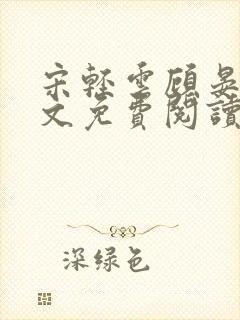 宋轻云顾晏
文免费阅读
深绿色